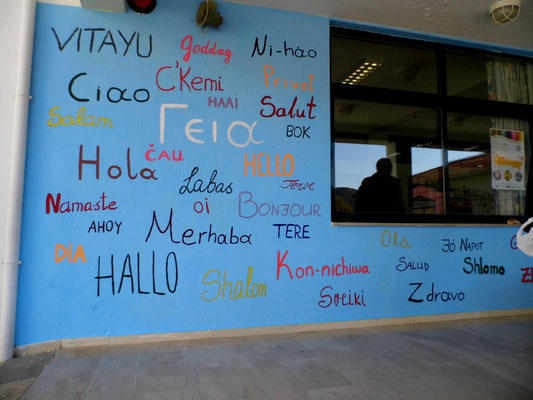 VITAYU
goddag
Ni-hào
Ciao
C'Kemi
Privet
HAAI
Salam
Γεια
Salut
BOK
Hola
ČAU
HELLO
Labas
Terve
Namaste
oi
BONJOUR
AHOY
Merhaba
TERE
Ola
JÓ NAPOT
DIA
HALLO
Shalom
Kon-nichiwa
SALUD
Shlomo
Sveiki
Zdravo